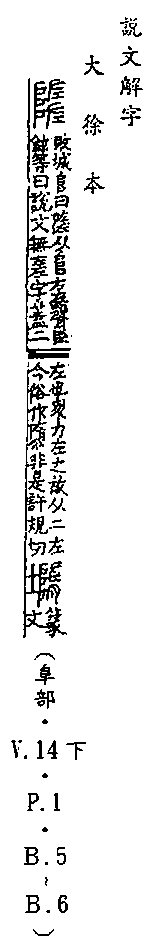 說文解字
大徐本
隓 敗城𨸏曰隓从𨸏𢀡聲臣
鉉等曰說文無𢀡字蓋二
左也衆力左之故从二左
今俗作隳非是許規切 篆文
（阜部・V.14下・P.1・B.5~B.6）